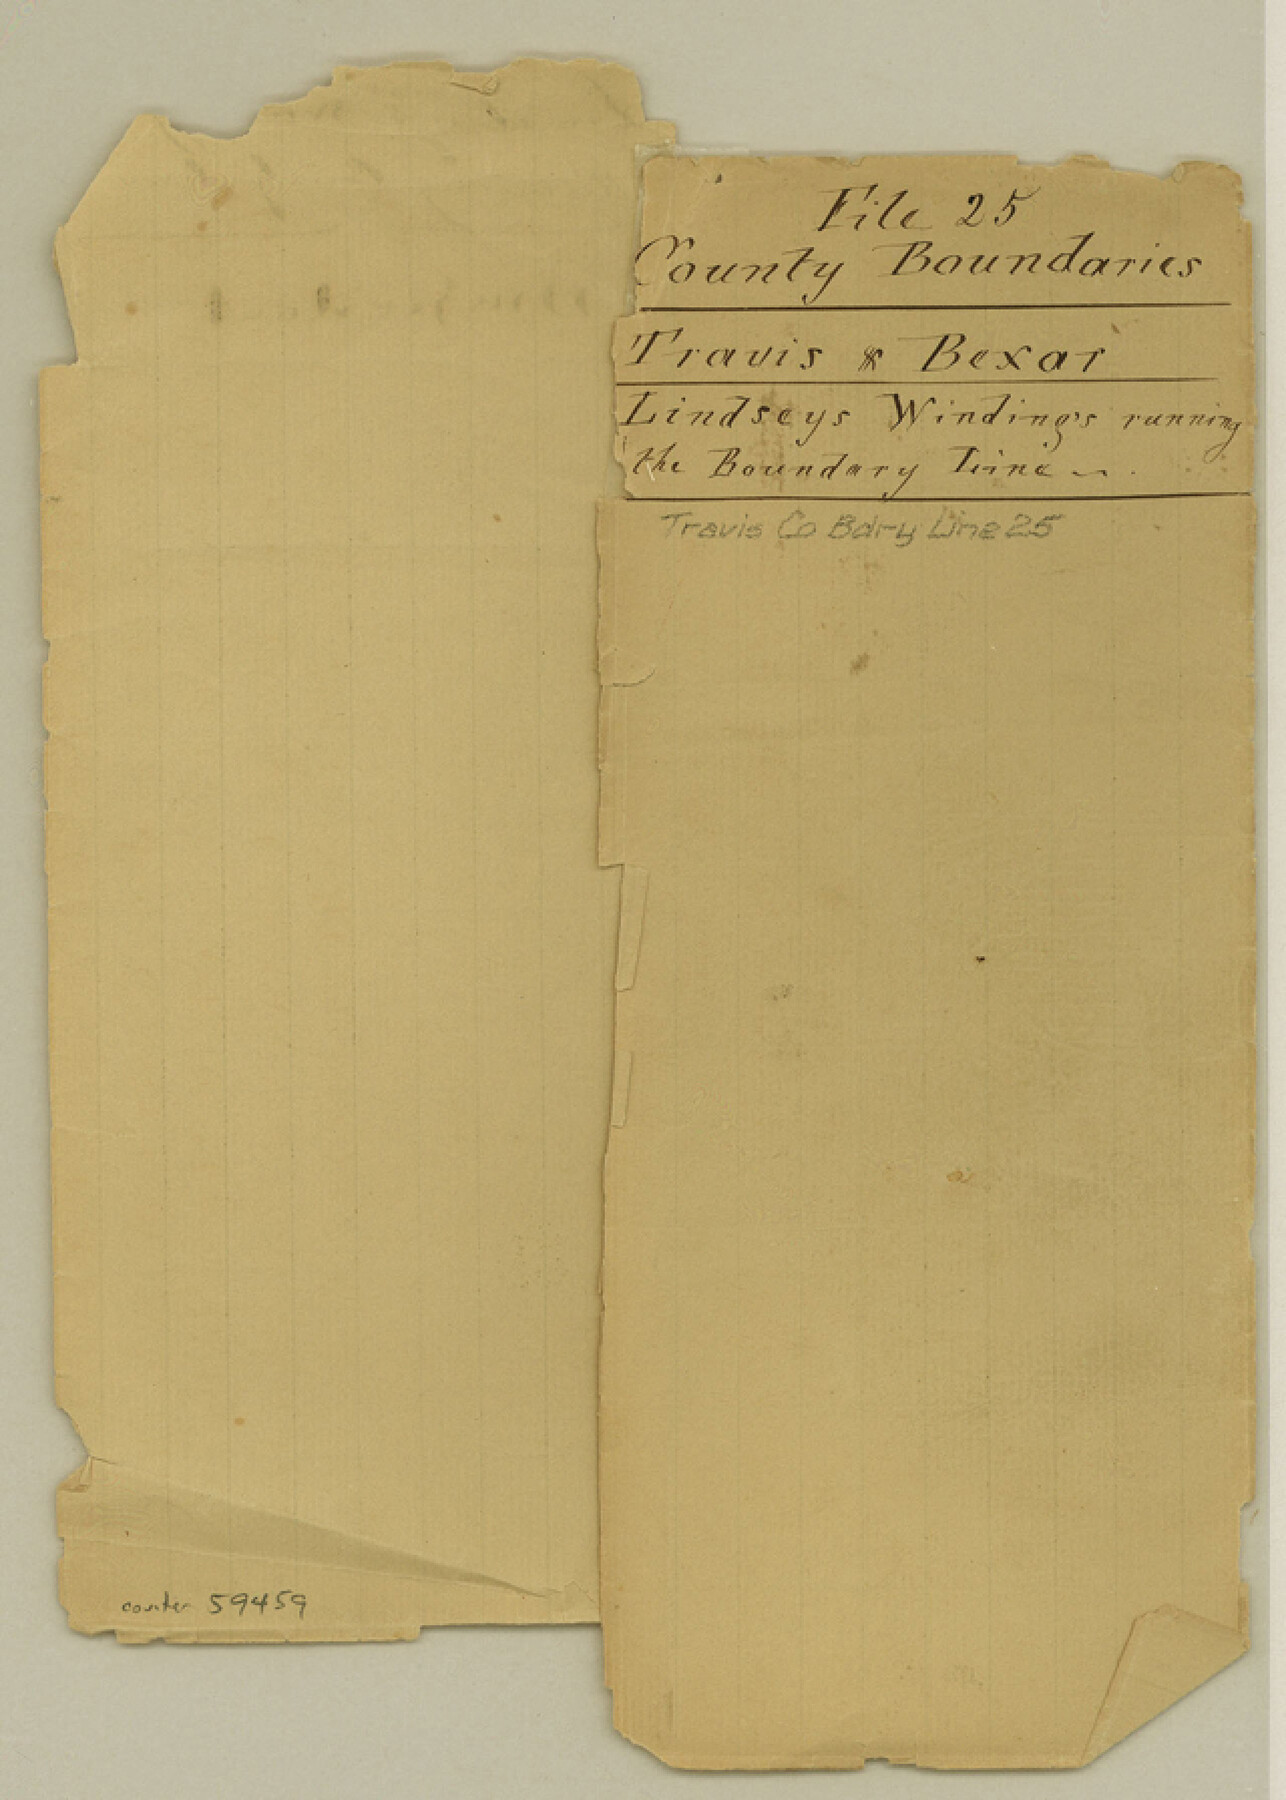 File 25
County Boundaries
Travis & Bexar
Lindseys Windings running
the Boundary Line
Travis Co Bdry Line 25
counter 59459